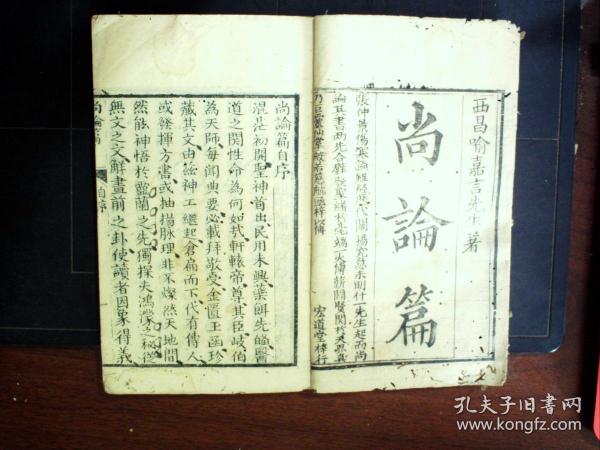 西昌喻嘉言先生著
尚論篇
宏道堂梓行
尚論篇自序
混茫初開聖神首出民用未興藥餌先臨醫
道之関性命為何如㢤軒轅帝尊其臣岐伯
為天師每聞典要必載拜敬受金匱玉函珍
藏其文由茲神工繼起倉扁而下代有傳人
或發揮方書或抽揚脉理非不燦然天地間
然能神悟於靈蘭之先獨探夫鴻濛之秘從
無文之文解畫前之卦使讀者因象得義
尚論篇
自序
孔夫子旧书网
www.kongfz.com